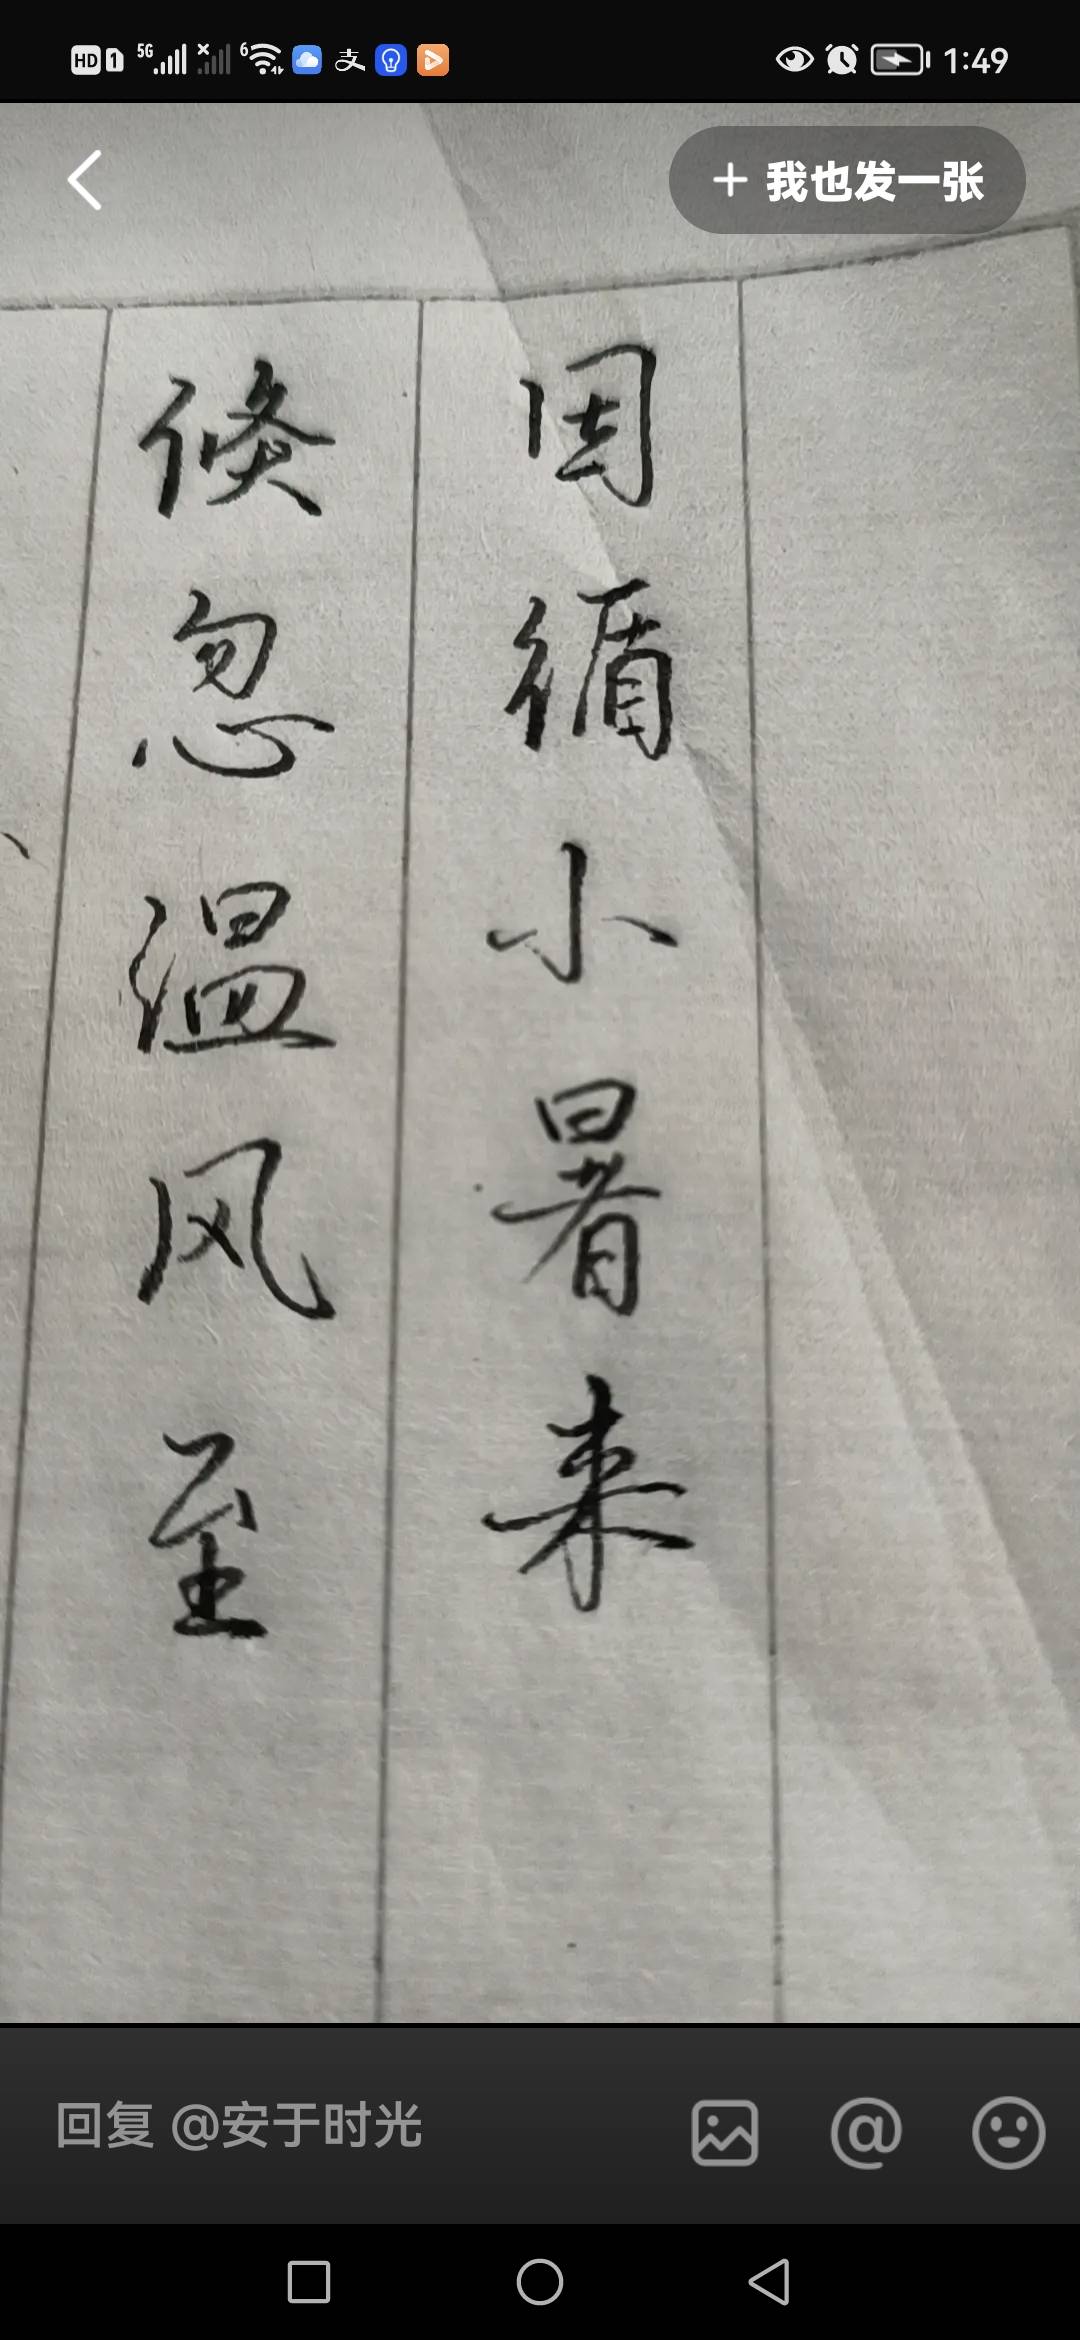 HD 1 5G 6 支 1:49
+ 我也发一张
因循小暑来
倏忽温风至
回复 @安于时光